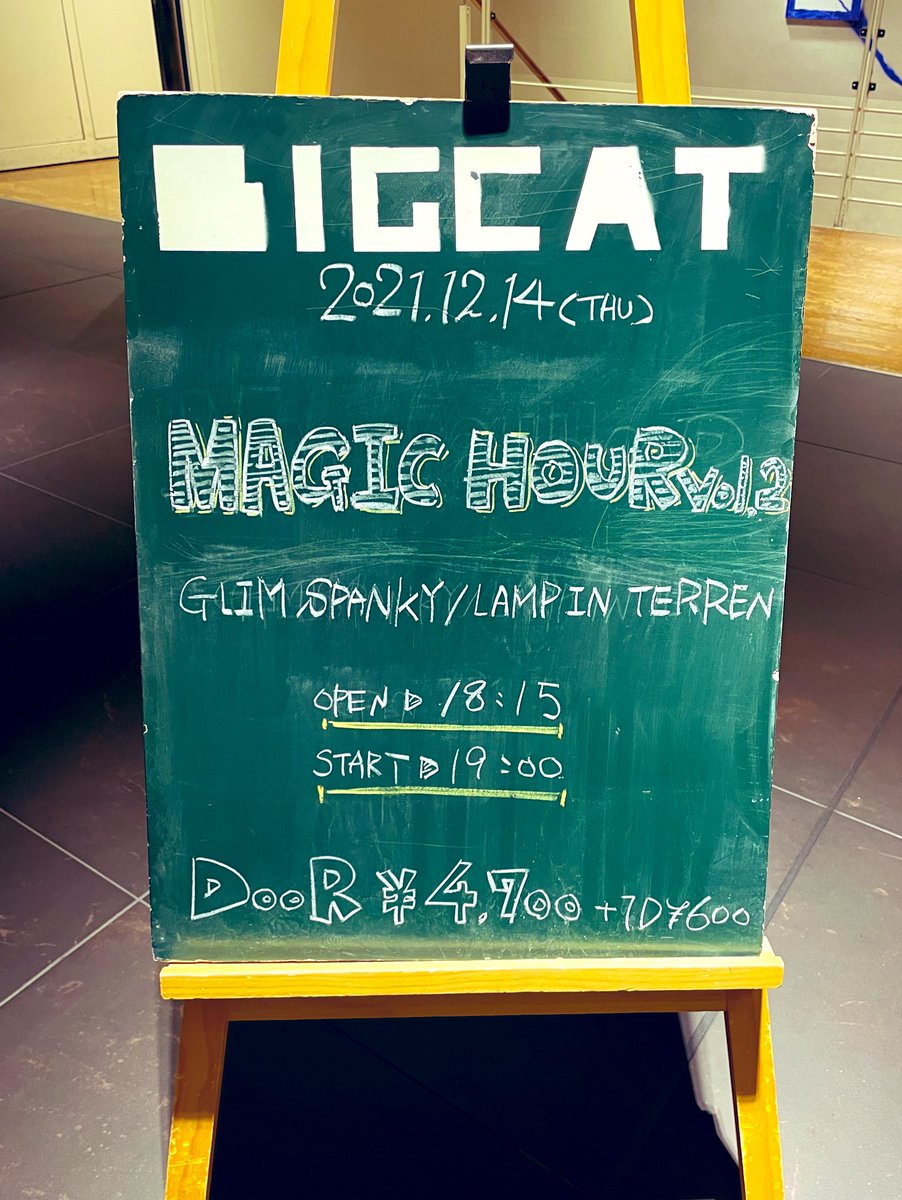 BIGCAT
2021.12.14(THU)
MAGIC HOUR Vol.2
GLIM SPANKY/LAMP IN TERREN
OPEN ▷ 18:15
START ▷ 19:00
DOOR ¥4,700 +1D¥600